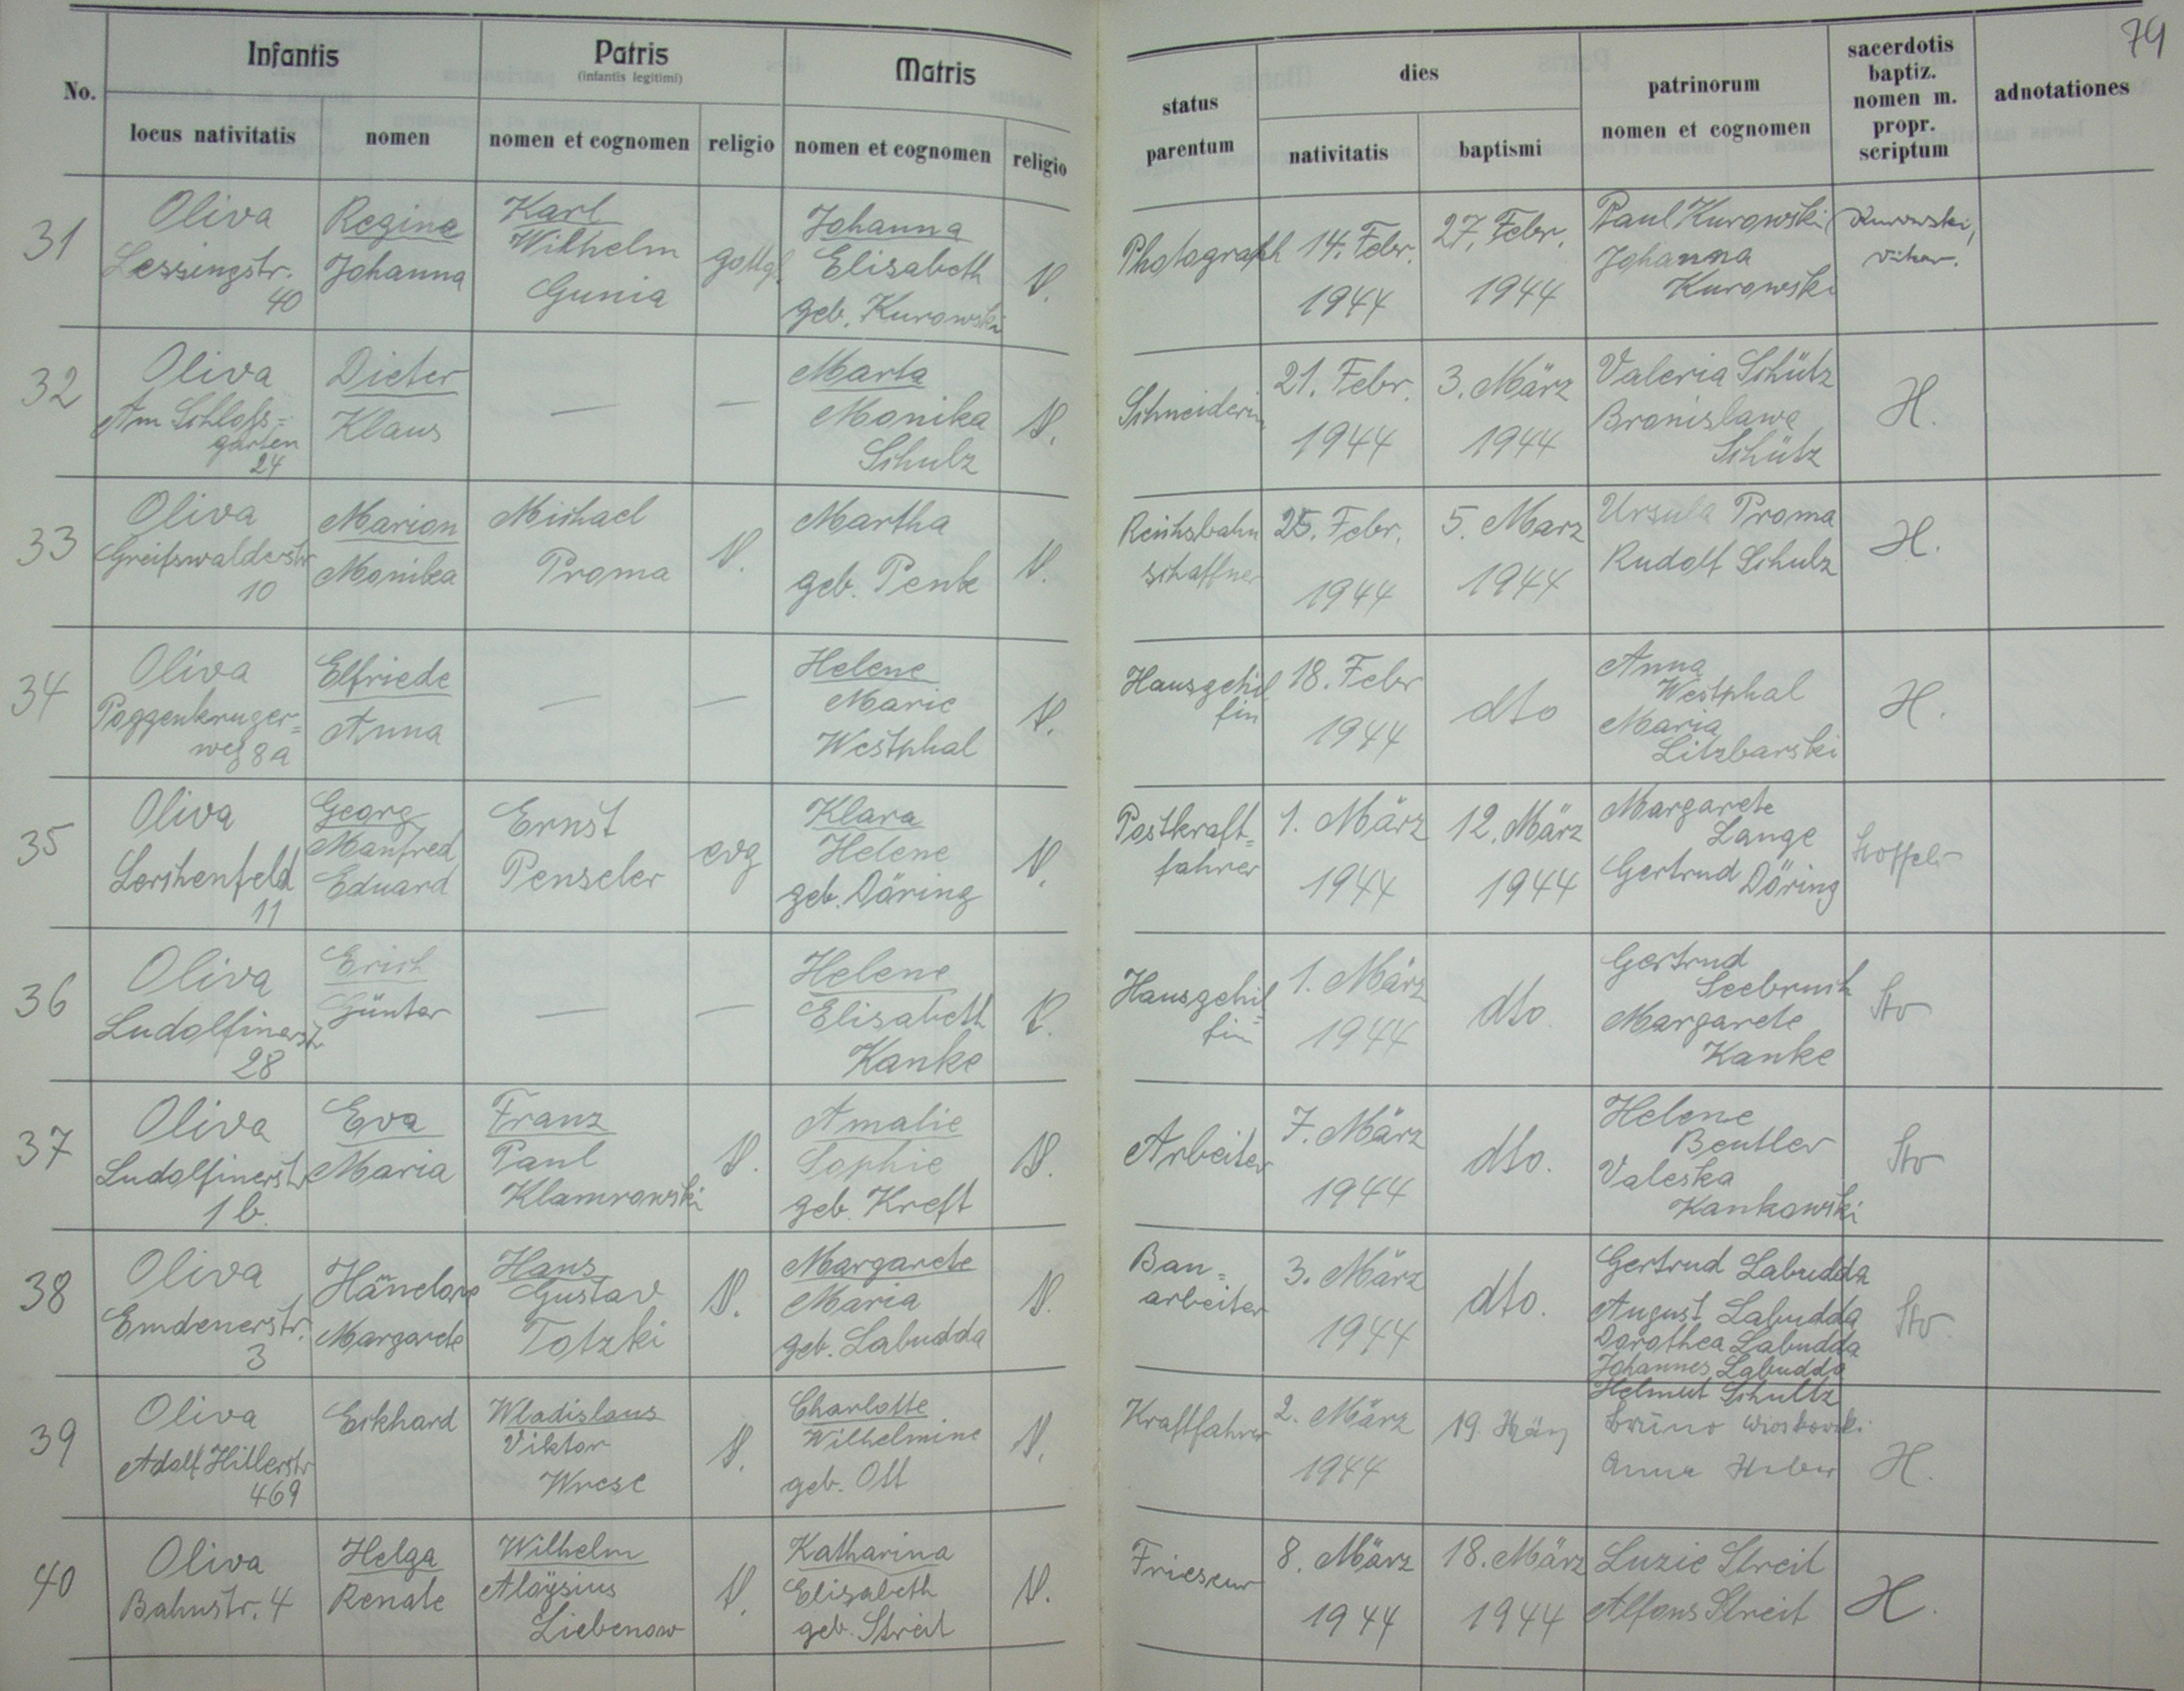 79
No.
Infantis
locus nativitatis
nomen
Patris
(infantis legitimi)
nomen et cognomen
religio
Matris
nomen et cognomen
religio
status
parentum
dies
nativitatis
baptismi
patrinorum
nomen et cognomen
sacerdotis
baptiz.
nomen m.
propr.
scriptum
adnotationes
31
Oliva
Lessingstr.
40
Regine
Johanna
Karl
Wilhelm
Gunia
gottgl.
Johanna
Elisabeth
geb. Kurowski
Photograph
14. Febr.
1944
27. Febr.
1944
Paul Kurowski
Johanna
Kurowski
Kurowski,
Vikar.
32
Oliva
Am Schloß=
garten
24
Dieter
Klaus
—
—
Marta
Monika
Schulz
Schneiderin
21. Febr.
1944
3. März
1944
Valeria Schütz
Bronislawa
Schütz
H.
33
Oliva
Greifswalderstr
10
Marion
Monika
Michael
Proma
Martha
geb. Penk
Reichsbahn
schaffner
25. Febr.
1944
5. März
1944
Ursula Proma
Rudolf Schulz
H.
34
Oliva
Poggenkruger=
weg 8a
Elfriede
Anna
—
—
Helene
Marie
Westphal
Hausgehil
fin
18. Febr
1944
dto
Anna
Westphal
Maria
Litzbarski
H.
35
Oliva
Lerchenfeld
11
Georg
Manfred
Eduard
Ernst
Penseler
evg
Klara
Helene
geb. Döring
Postkraft=
fahrer
1. März
1944
12. März
1944
Margarete
Lange
Gertrud Döring
36
Oliva
Ludolfinerstr
28
Erich
Günter
—
—
Helene
Elisabeth
Kanke
Hausgehil=
fin
1. März
1944
dto
Gertrud
Seebruch
Margarete
Kanke
37
Oliva
Ludolfinerstr
1b.
Eva
Maria
Franz
Paul
Klamrowski
Amalie
Sophie
geb. Kreft
Arbeiter
7. März
1944
dto.
Helene
Beutler
Valeska
Kankowski
38
Oliva
Emdenerstr.
3
Hänelore
Margarete
Hans
Gustav
Totzki
Margarete
Maria
geb. Labudda
Bau=
arbeiter
3. März
1944
dto.
Gertrud Labudda
August Labudda
Dorothea Labudda
Johannes Labudda
Helmut Schultz
39
Oliva
Adolf Hitlerstr
469
Eckhard
Wladislaus
Viktor
Wrese
Charlotte
Wilhelmine
geb. Ott
Kraftfahrer
2. März
1944
19. März
Bruno
Anna
H.
40
Oliva
Bahnstr. 4
Helga
Renate
Wilhelm
Aloÿsius
Liebenow
Katharina
Elisabeth
geb. Streit
Frieseur
8. März
1944
18. März
1944
Luzie Streit
Alfons Streit
H.